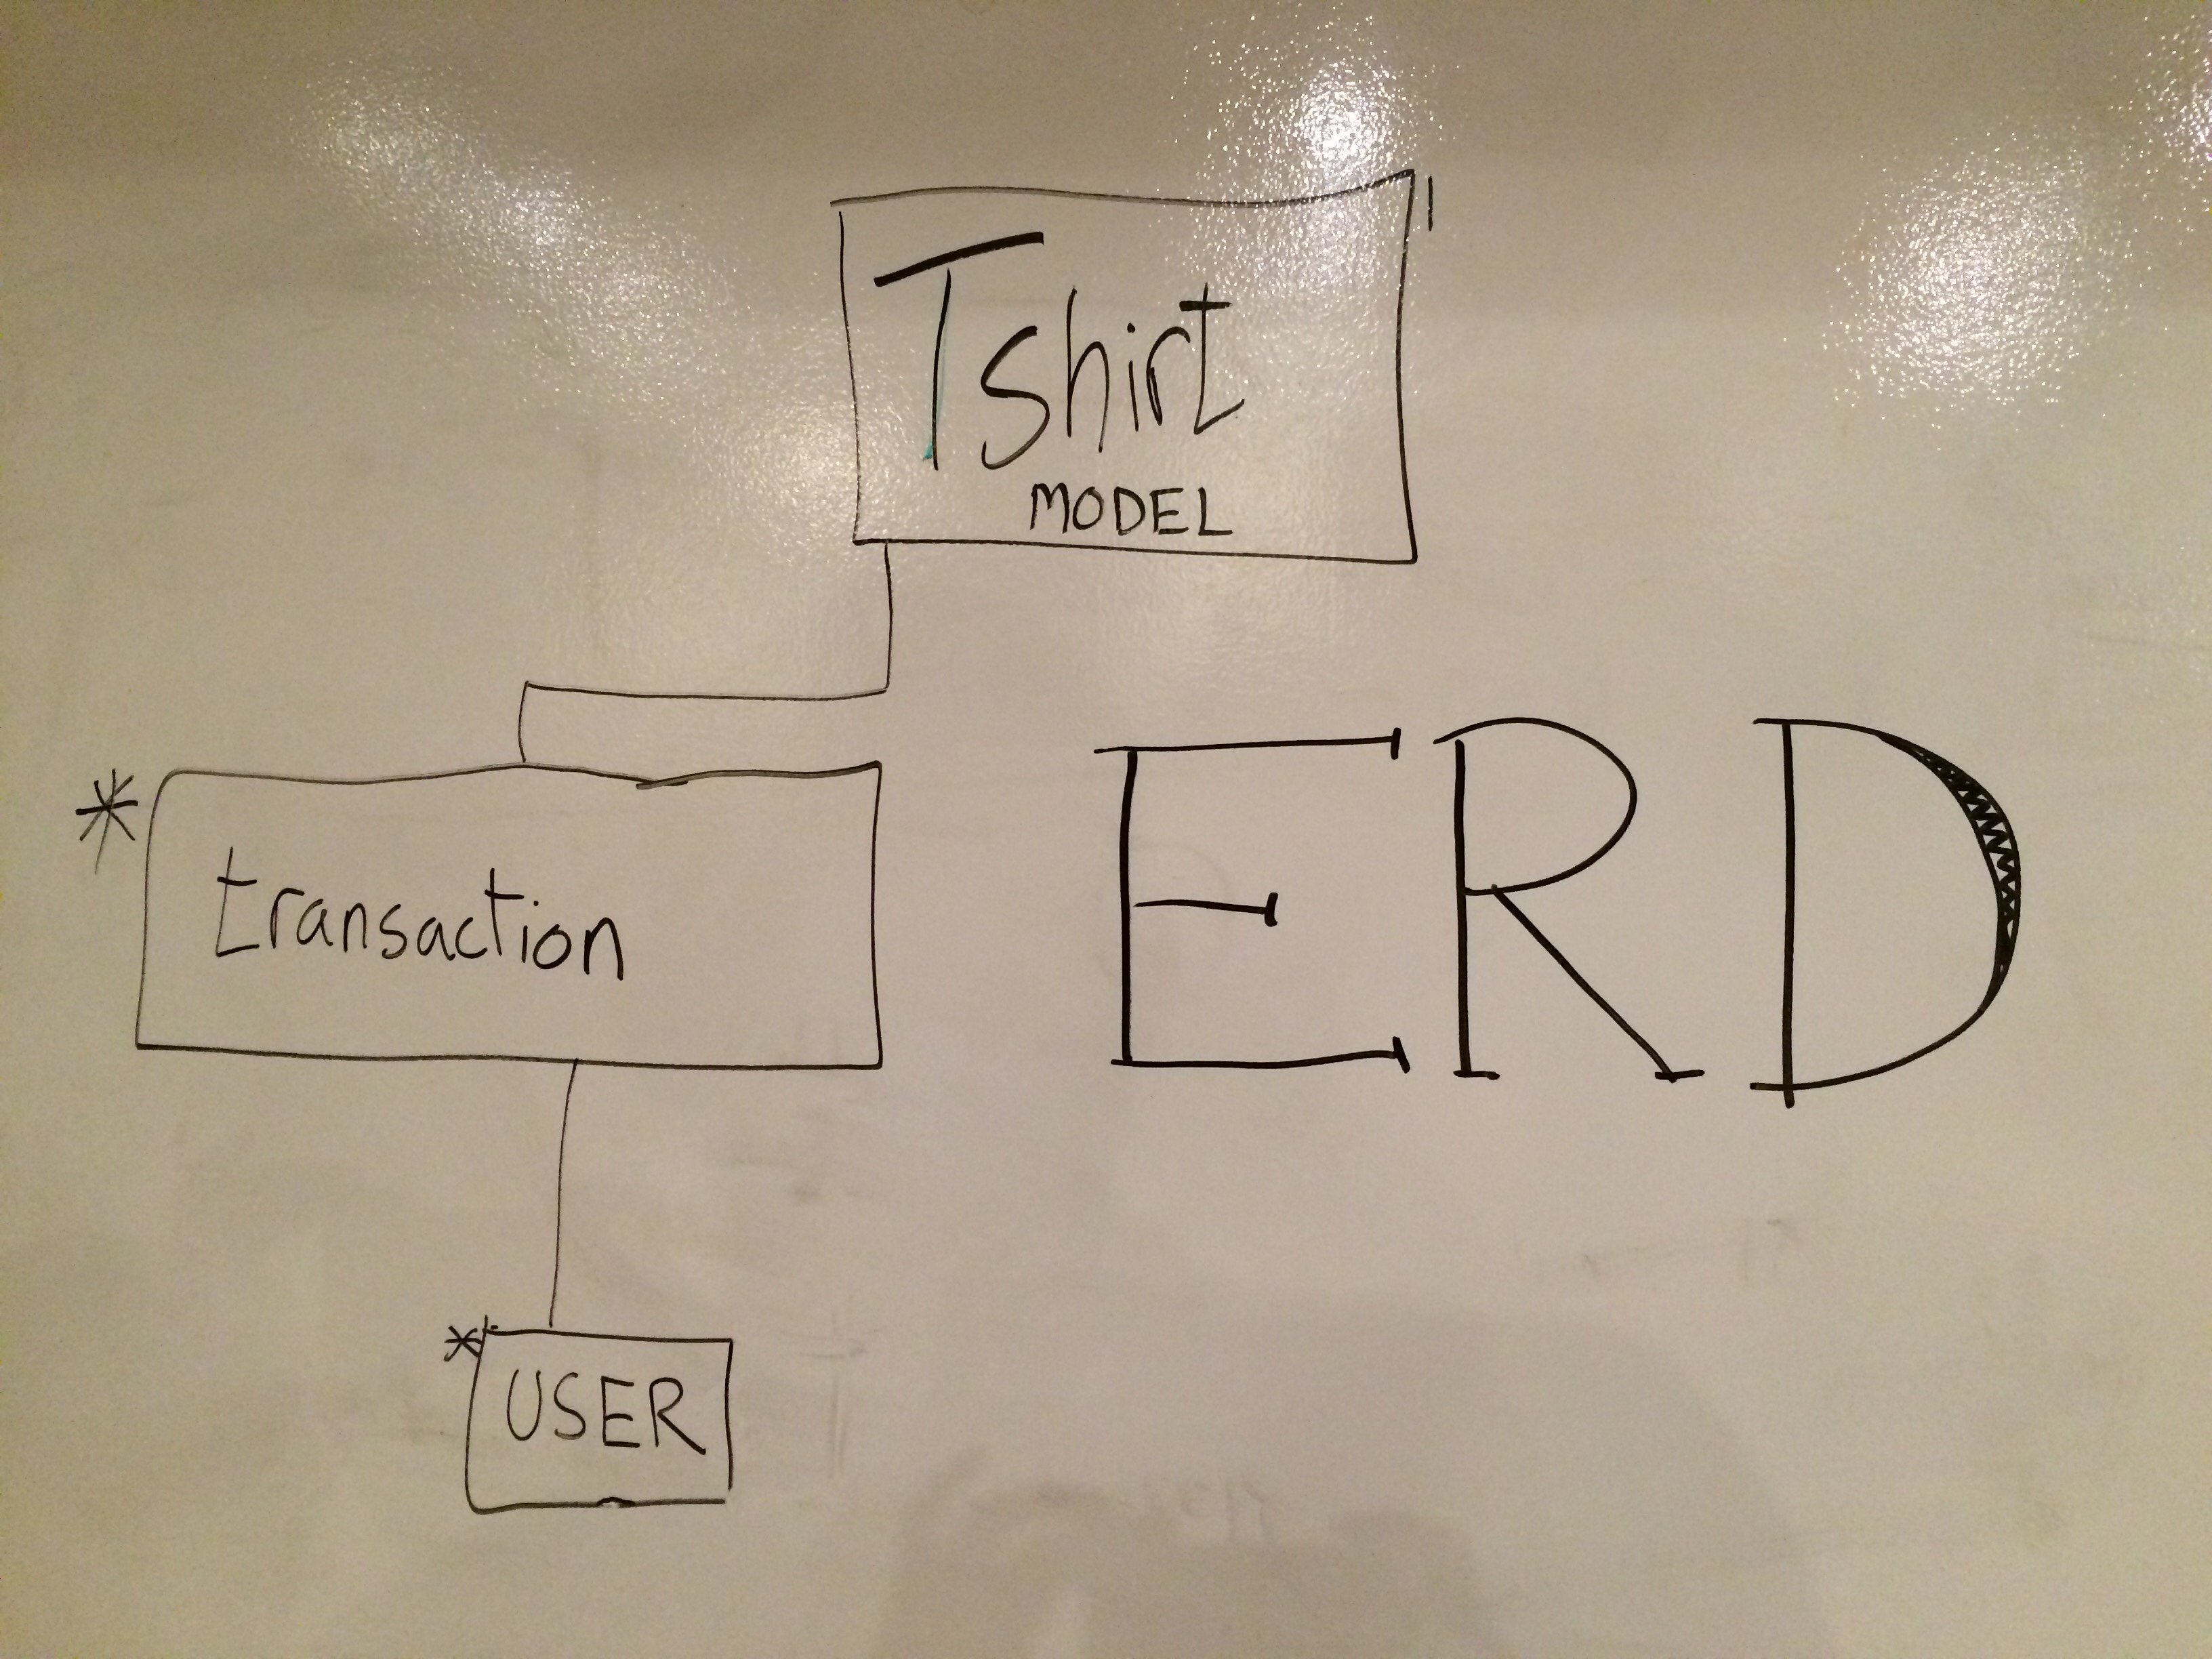 1
Tshirt
MODEL
*
transaction
ERD
*
USER